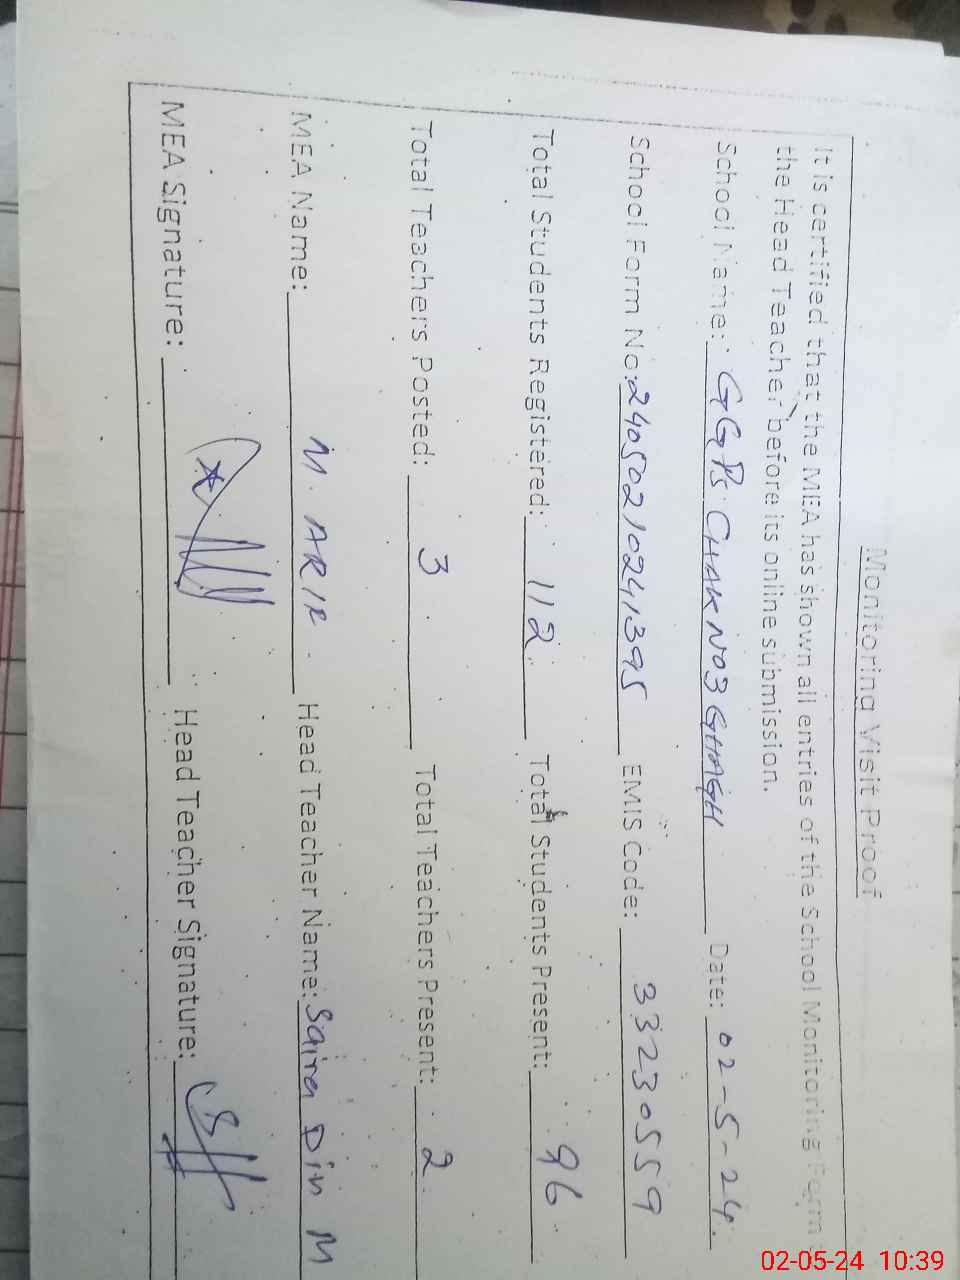 Monitoring Visit Proof
It is certified that the MEA has shown all entries of the School Monitoring Form
the Head Teacher before its online submission.
School Name: GGPS CHAK NO3 GHAGH Date: 02-5-24.
School Form No: 24050210241395 EMIS Code: 33230559
Total Students Registered: 112 Total Students Present: 96
Total Teachers Posted: 3 Total Teachers Present: 2
MEA Name: M. ARIF Head Teacher Name: Saira Din M
MEA Signature: Head Teacher Signature:
02-05-24 10:39